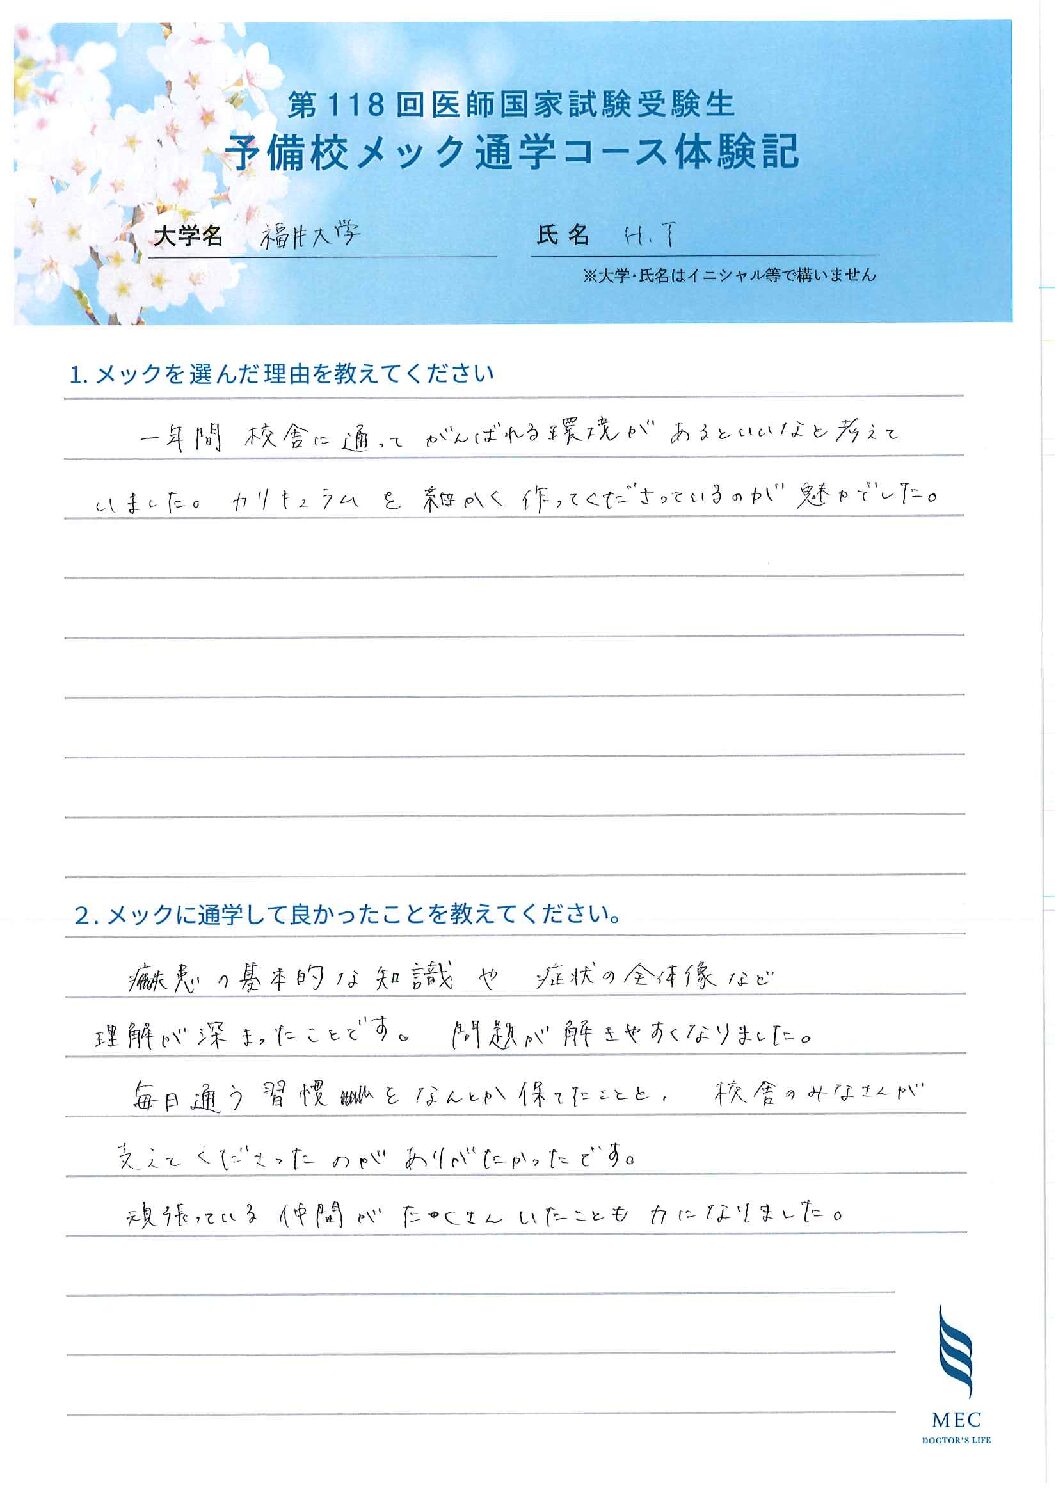 第118回医師国家試験受験生
予備校メック通学コース体験記
大学名 福井大学 氏名 H.T
※大学・氏名はイニシャル等で構いません
1. メックを選んだ理由を教えてください
一年間 校舎に通って がんばれる環境が あるといいなと考えて
いました。カリキュラムを細かく作ってくださっているのが魅力でした。
2. メックに通学して良かったことを教えてください。
疾患の基本的な知識や 症状の全体像など
理解が深まったことです。 問題が解きやすくなりました。
毎日通う習慣をなんとか保てたことと、 校舎のみなさんが
支えてくださったのがありがたかったです。
頑張っている仲間がたくさんいたことも力になりました。
MEC
DOCTOR'S LIFE